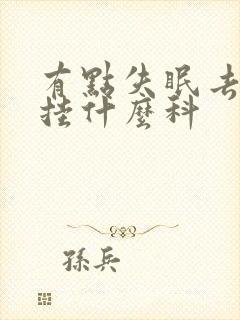 有點失眠去
挂什麼科
孫兵